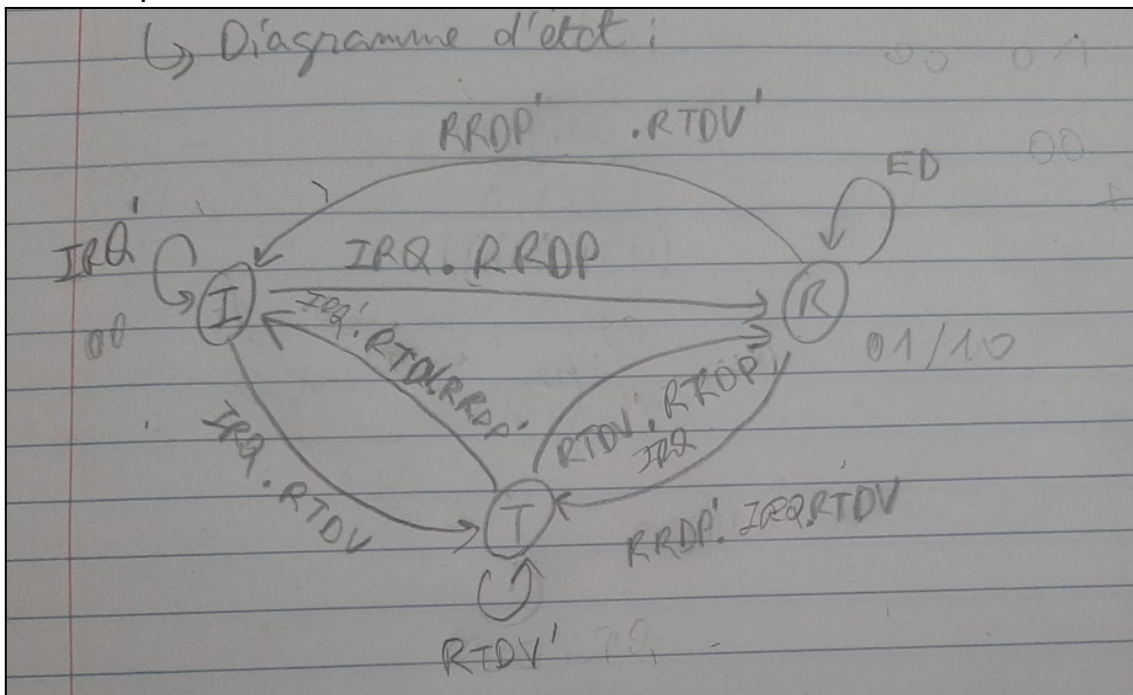 ↳ Diagramme d'état :
00 01
RRDP' .RTDV'
00
ED
IRQ'
IRQ.RRDP
I
R
00
IRQ'.RTDV.RRDP'
01/10
RTDV'.RRDP
IRQ
IRQ.RTDV
T
RRDP'.IRQ.RTDV
RTDV'